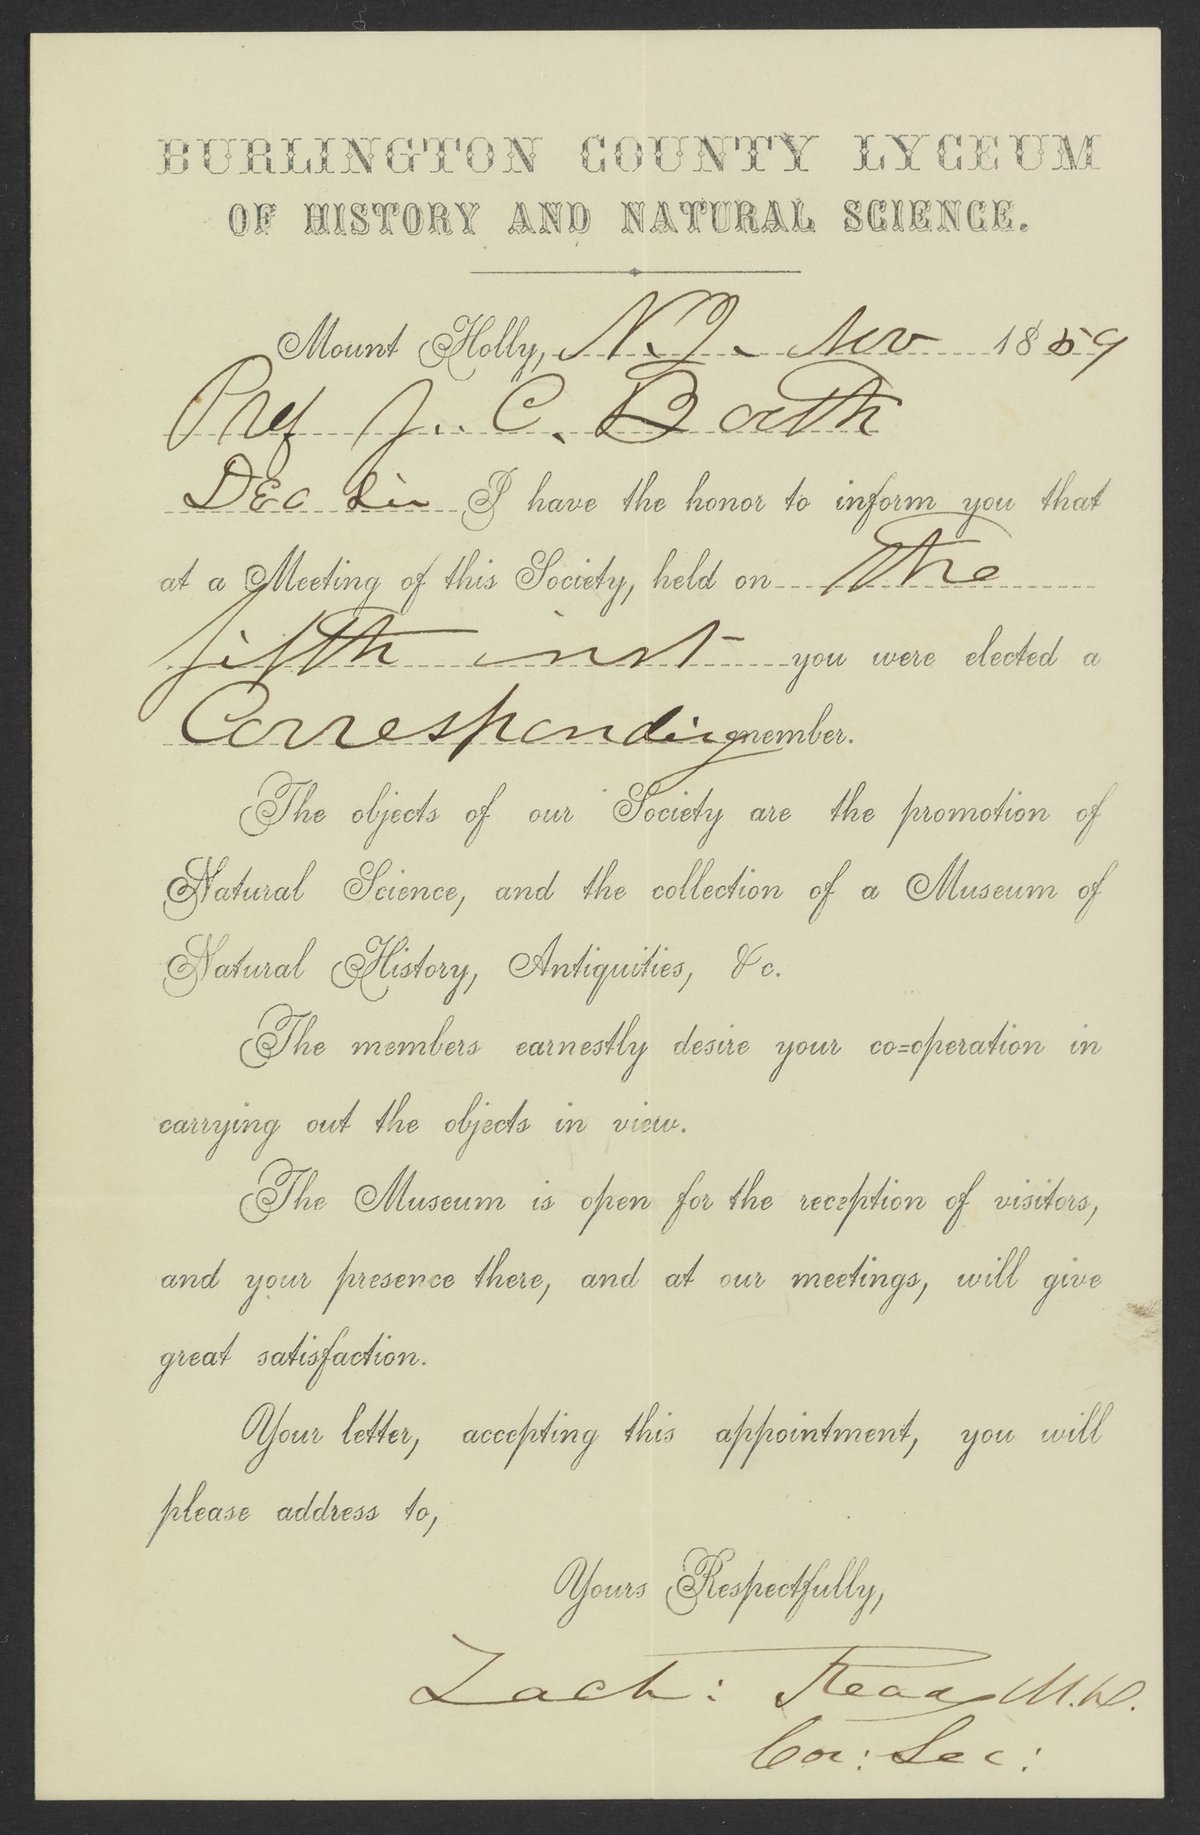 BURLINGTON COUNTY LYCEUM
OF HISTORY AND NATURAL SCIENCE.
Mount Holly, N.J. Nov 1859
Prof J. C. Booth
Dear Sir I have the honor to inform you that
at a Meeting of this Society, held on the
fifth inst you were elected a
Corresponding member.
The objects of our Society are the promotion of
Natural Science, and the collection of a Museum of
Natural History, Antiquities, &c.
The members earnestly desire your co=operation in
carrying out the objects in view.
The Museum is open for the reception of visitors,
and your presence there, and at our meetings, will give
great satisfaction.
Your letter, accepting this appointment, you will
please address to,
Yours Respectfully,
Zach: Read M.D.
Cor: Sec: